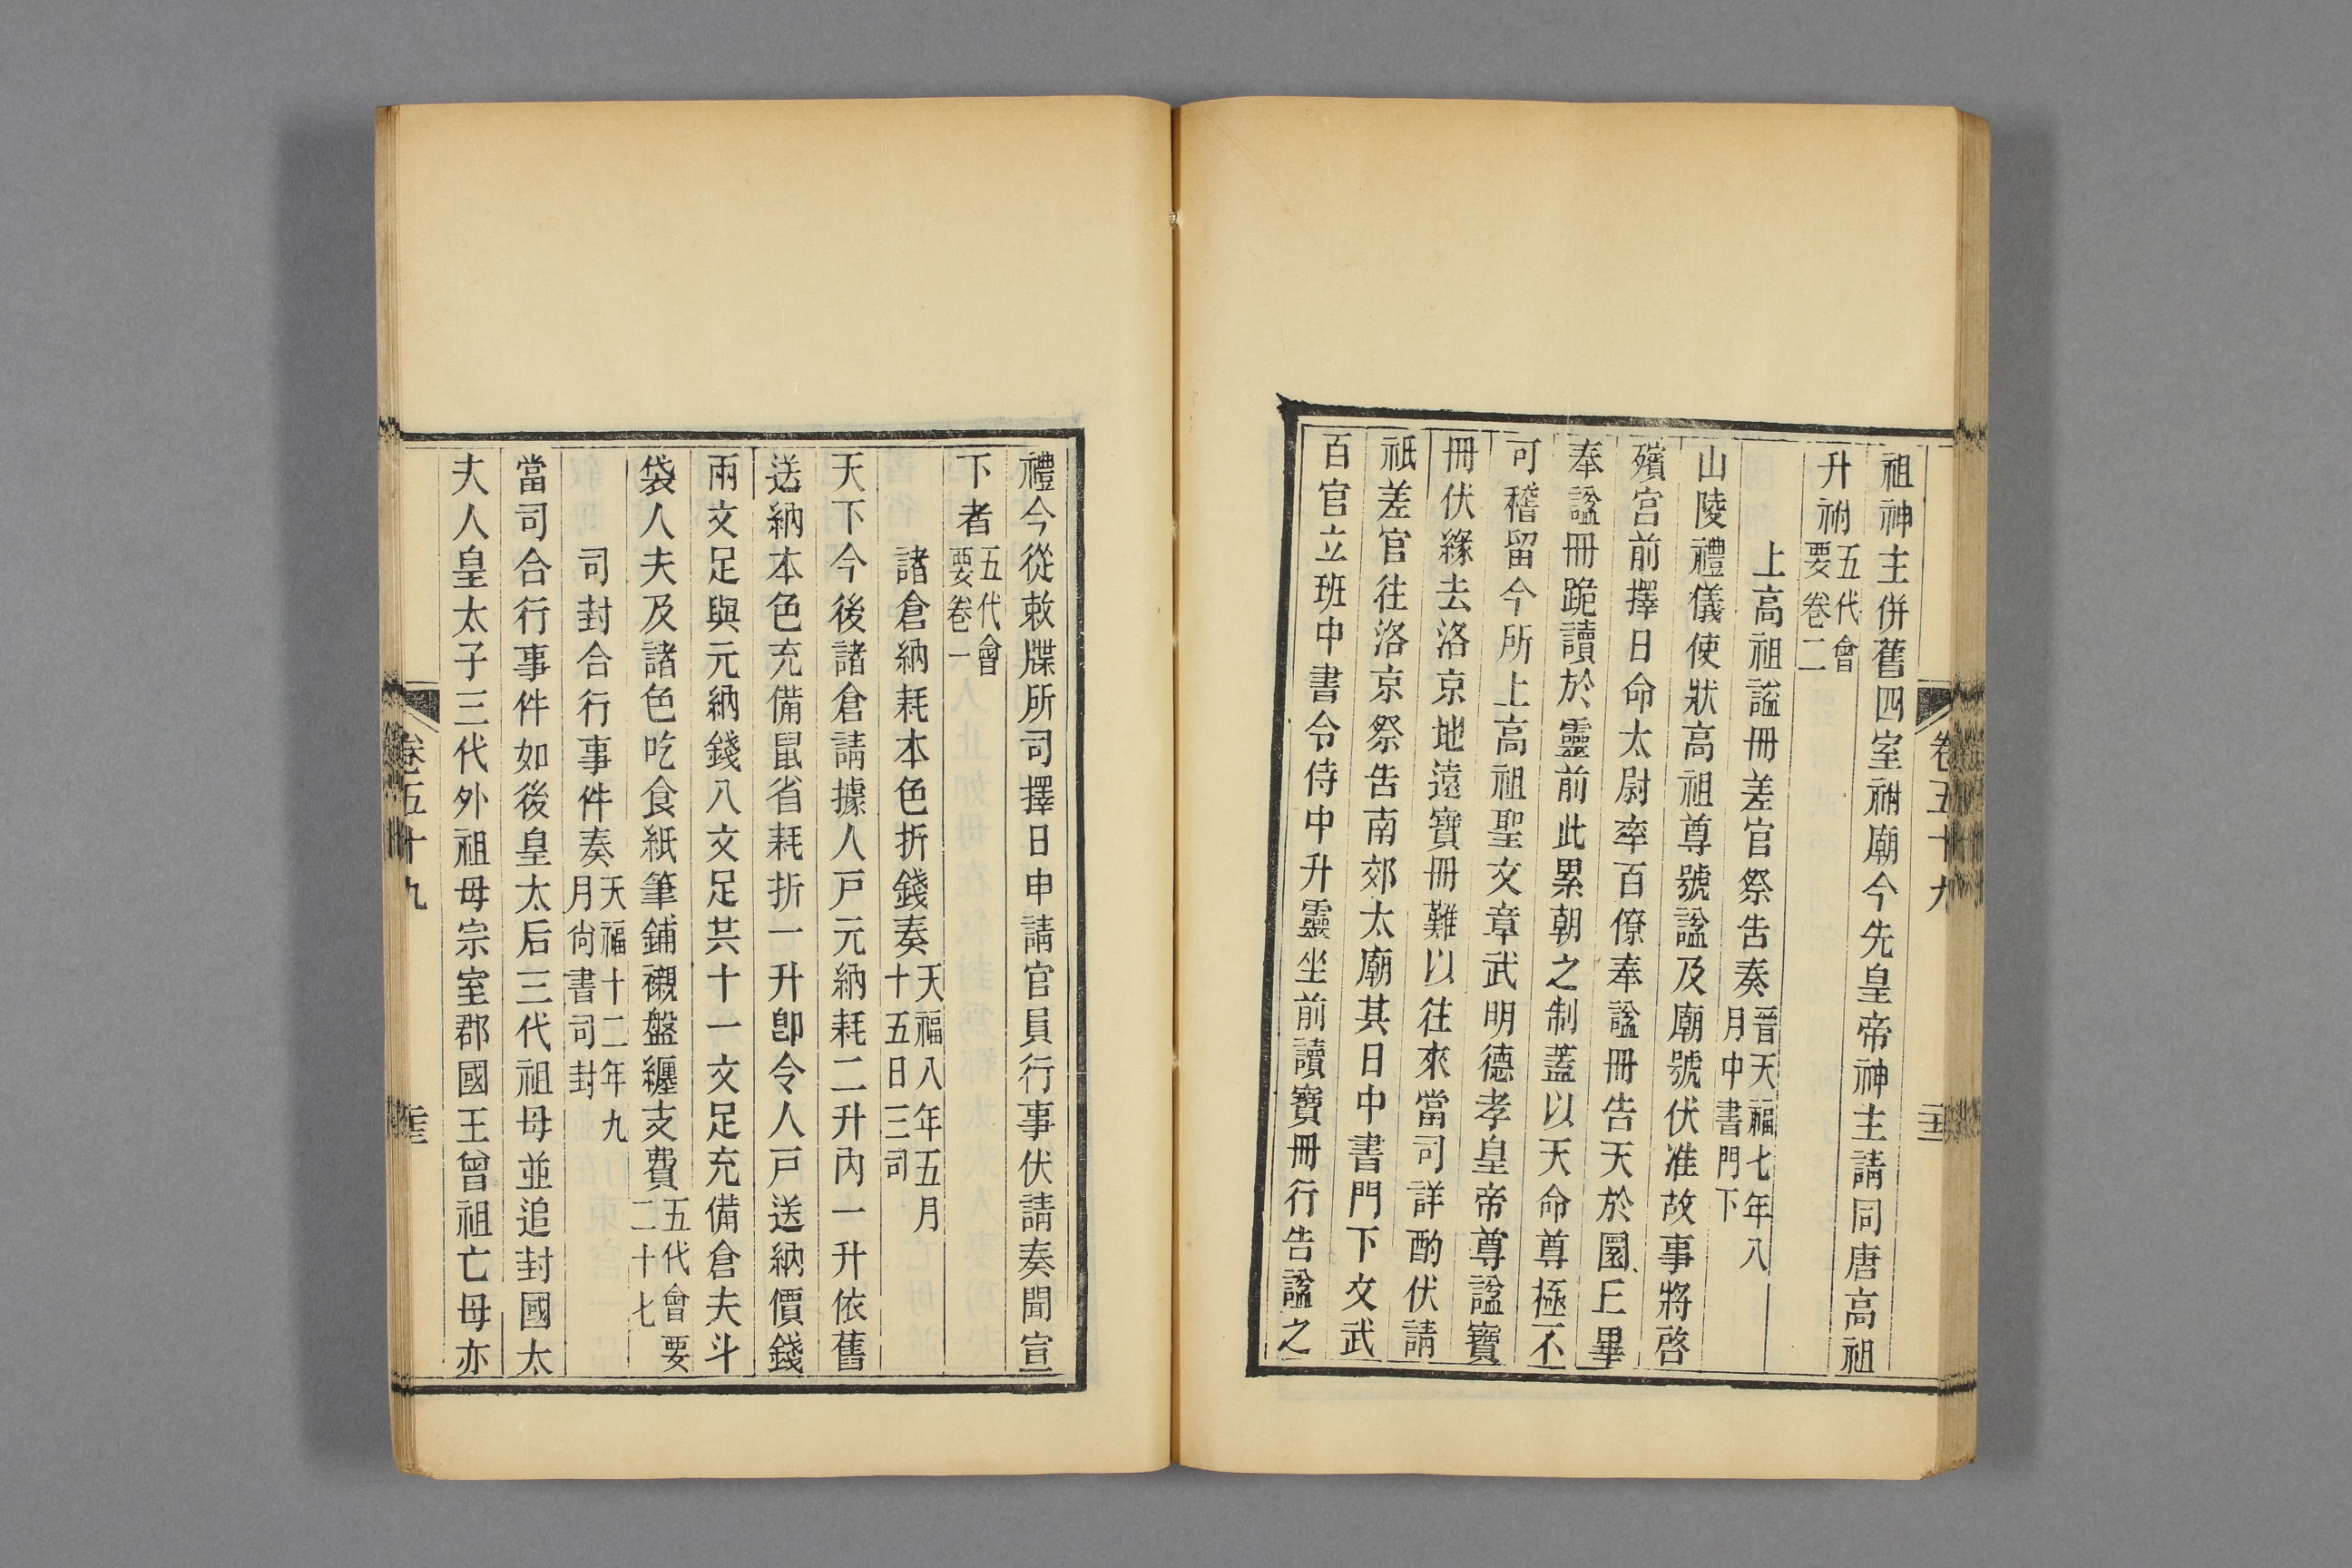 祖神主併舊四室祔廟今先皇帝神主請同唐高祖
升祔五代會
要卷二
上高祖謚冊差官祭告奏晉天福七年八
月中書門下
山陵禮儀使狀高祖尊號諡及廟號伏准故事將啓
殯宮前擇日命太尉率百僚奉諡冊告天於圜丘畢
奉諡冊跪讀於靈前此累朝之制蓋以天命尊極不
可稽留今所上高祖聖文章武明德孝皇帝尊諡寶
冊伏緣去洛京地遠寶冊難以往來當司詳酌伏請
祇差官往洛京祭告南郊太廟其日中書門下文武
百官立班中書令侍中升靈坐前讀寶冊行告諡之
卷五十九
禮今從敕牒所司擇日申請官員行事伏請奏聞宣
下者五代會
要卷一
諸倉納耗本色折錢奏天福八年五月
十五日三司
天下今後諸倉請據人戸元納耗二升內一升依舊
送納本色充備鼠省耗折一升卽令人戸送納價錢
兩文足與元納錢八文足共十一文足充備倉夫斗
袋人夫及諸色吃食紙筆鋪襯盤纏支費五代會要
二十七
司封合行事件奏天福十二年九
月尙書司封
當司合行事件如後皇太后三代祖母並追封國太
夫人皇太子三代外祖母宗室郡國王曾祖亡母亦
卷五十九